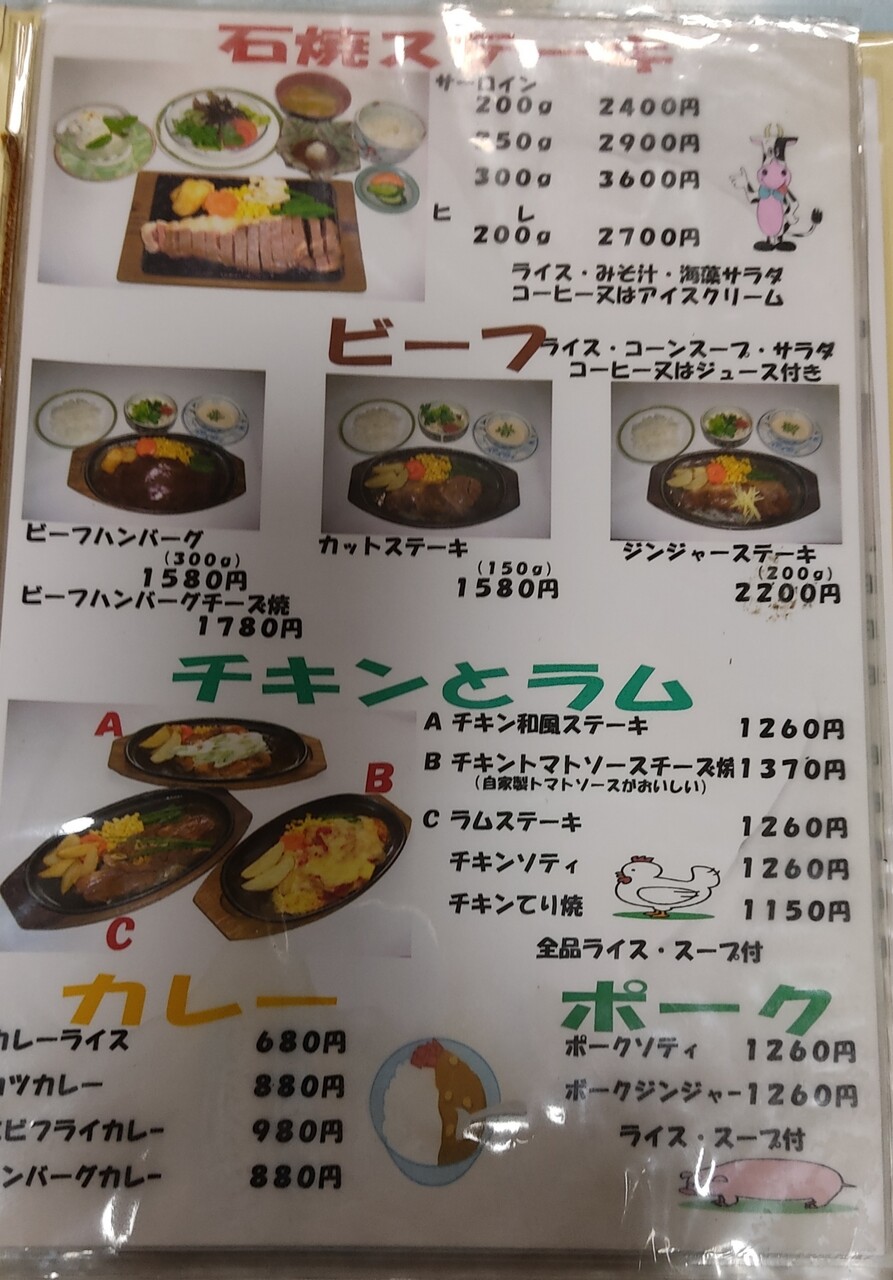 石焼ステーキ
サーロイン
200g 2400円
250g 2900円
300g 3600円
ヒレ
200g 2700円
ライス・みそ汁・海藻サラダ
コーヒー又はアイスクリーム
ビーフ
ライス・コーンスープ・サラダ
コーヒー又はジュース付き
ビーフハンバーグ
(300g)
1580円
ビーフハンバーグチーズ焼
1780円
カットステーキ
(150g)
1580円
ジンジャーステーキ
(200g)
2200円
チキンとラム
A
B
C
A チキン和風ステーキ 1260円
B チキントマトソースチーズ焼 1370円
(自家製トマトソースがおいしい)
C ラムステーキ 1260円
チキンソティ 1260円
チキンてり焼 1150円
全品ライス・スープ付
カレー
カレーライス 680円
カツカレー 880円
エビフライカレー 980円
ンバーグカレー 880円
ポーク
ポークソティ 1260円
ポークジンジャー 1260円
ライス・スープ付